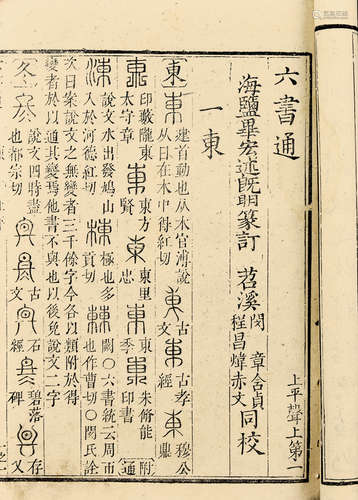 六書通 上平聲上第一
海鹽畢宏述既明篆訂 苕溪 閔章含貞 程昌煒赤文 同校
一東
東 東 建首動也从木官溥說 从日在木中得紅切 古文 古孝經 穆公鼎
東 印藪隴東太守章 東方賢 東里忠 季東 朱脩能印書 附通
涷 說文水出發鳩山入於河德紅切 棟 極也多貢切 闕○六書統云周帀也作曹切○閔氏詮
次日案說文之無變者三千條字今各以類附於得
變者於以通其變焉他書不與也以後免說文二字
冬 說文四時盡也都宗切 古文 石經 碧落碑 存乂